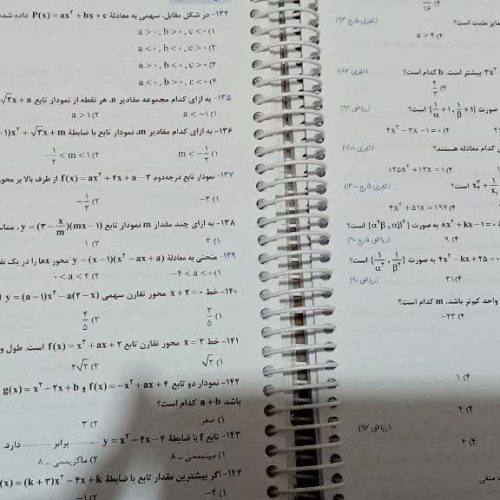 ۱۳۴- در شکل مقابل، سهمی به معادلهٔ P(x) = ax² + bx + c داده شده
a > ۰, b > ۰, c < ۰ (۱
a < ۰, b > ۰, c < ۰ (۲
a > ۰, b < ۰, c < ۰ (۳
a < ۰, b > ۰, c > ۰ (۴
۱۳۵- به ازای کدام مجموعه مقادیر a، هر نقطه از نمودار تابع
a < -۱ (۱
a > ۱ (۲
۱۳۶- به ازای کدام مقادیر m، نمودار تابع با ضابطهٔ -۱)x² + √۳x + m
m < -۱/۲ (۱
-۱/۲ < m < ۱ (۲
۱۳۷- نمودار تابع درجه‌دوم f(x) = ax² + ۴x + a - ۳ از طرف بالا بر محور
-۲ (۱
-۱/۲ (۲
۱۳۸- به ازای چند مقدار m نمودار تابع y = (۳ - x/m)(mx - ۱) ، مماس
۲ (۱
۱ (۲
۱۳۹- منحنی به معادلهٔ y = (x - ۱)(x² - ax + a) محور xها را در یک نقطه
-۴ < a < ۰ (۱
۰ < a < ۲ (۲
۱۴۰- خط x + ۲ = ۰ محور تقارن سهمی y = (a - ۱)x² - a(۲ - x)
۳/۵ (۱
۴/۵ (۲
۱۴۱- خط x = ۲ محور تقارن تابع f(x) = x² + ax + ۲ است. طول و
√۲ (۱
۲√۲ (۲
۱۴۲- نمودار دو تابع f(x) = -x² + ax + ۴ و g(x) = x² - ۲x + b
باشد a + b کدام است؟
۱) صفر
۳ (۲
۱۴۳- تابع f با ضابطهٔ y = x² - ۴x - ۴ ............ برابر ............ دارد.
۱) مینیممی - ۸
۲) ماکزیممی - ۸
۱۴۴- اگر بیشترین مقدار تابع با ضابطهٔ (x) = (k + ۳)x² - ۴x + k
-۴ (۱
-۱ (۲
۱۶
مایز مثبت است؟ (تجربی خارج ۹۳)
a > ۴ (۴
۳x² بیشتر است. b کدام است؟ (تجربی ۸۷)
۴/۳ (۴
{۱/α + ۱, ۱/β + ۱} است؟ (ریاضی ۹۲)
۴x² - ۳x - ۱ = ۰ (۴
ی کدام معادله هستند؟ (تجربی ۱۴۰۰)
۱۲۵x² + ۱۲x = ۱ (۴
است؟
۴x² + ۵۱x = ۱۹۲ (۴
۸x² + kx - ۱ = ۰ به صورت {α²β, αβ²} است؟
(ریاضی خارج ۹۰)
۹ (۴
۴x² - kx + ۲۵ = ۰ به صورت {۱/α², ۱/β²} است؟
(ریاضی ۹۰)
۳۱ (۴
واحد کم‌تر باشد، m کدام است؟
-۴۲ (۴
۱ (۴
۴ (۴
(ریاضی ۹۷)
۲ (۴
صفی